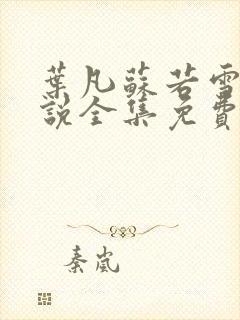 葉凡蘇若雪
說全集免費
秦嵐